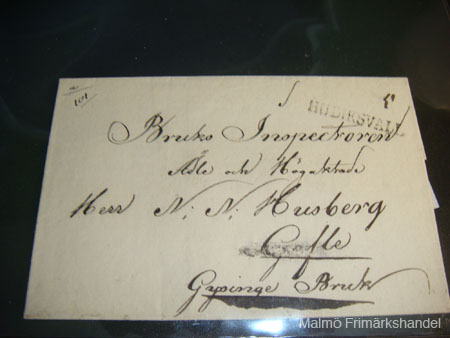 101
HUDIKSVALL
Bruks Inspectoren
Ädle och Högaktade
Herr N: N: Husberg
Gefle
Gysinge Bruk
Malmö Frimärkshandel